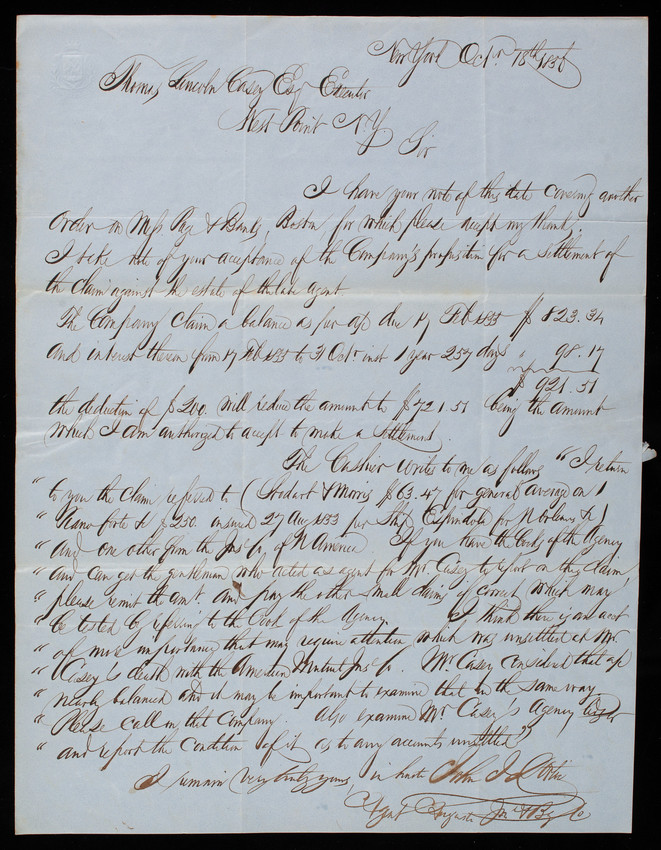 New York Octr 18th 1856
Thomas Lincoln Casey Esq Executor
West Point N.Y.
Sir
I have your note of this date covering another
Order on Mess & Banks, Boston, for which please accept my thanks,
I take note of your acceptance of the Company's proposition for a settlement of
the claim against the estate of the late agent.
The Company claim a balance as per a/c due 17 Feb 1855 $ 823.34
and interest thereon from 17 Feb 1855 to 31 Octr inst 1 year 257 days " 98.17
$ 921.51
the deduction of $200. will reduce the amount to $721.51 being the amount
which I am authorized to accept to make a settlement.
The Cashier writes to me as follows "I return
" to you the claim referred to (Stodart & Morris $63.47 for general average on 1
" Piano forte &c $250. insured 27 Aug 1853 per Ship Espindola for N Orleans &c)
" and one other from the Ins Co, of N America If you have the books of the Agency
" and can get the gentleman who acted as agent for Mr Casey to report on this claim,
" please remit the amt and pay the other small claim, if correct which may
" be tested by referring to the books of the Agency. I think there is an acct
" of more importance that may require attention, which was unsettled at Mr
" Casey's death with the American Mutual Ins Co. Mr Casey considered that a/c
" nearly balanced and it may be important to examine that in the same way
" Please call on that Company. Also examine Mr Casey's Agency
" and report the condition of it as to any accounts unsettled"
I remain very truly yours, in haste John J
Agent Augusta Ins & Bkg Co